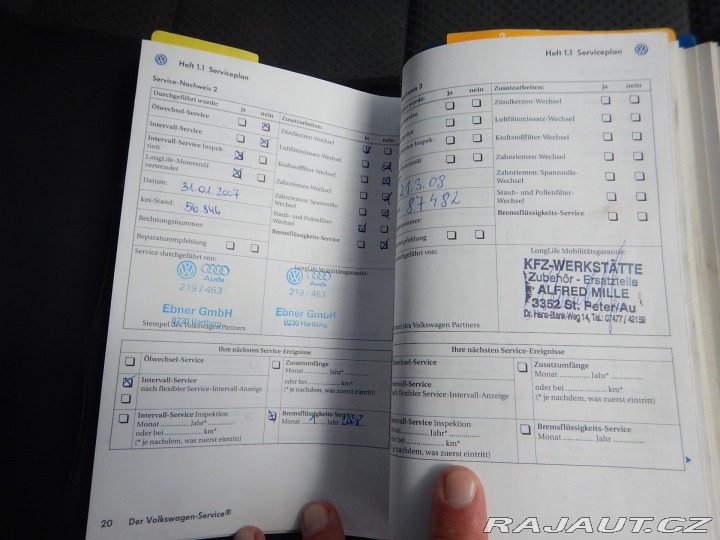 Heft 1.1 Serviceplan
Service-Nachweis 2
Durchgeführt wurde: ja nein
Ölwechsel-Service
Intervall-Service
Intervall-Service Inspek-
tion
LongLife-Motorenöl
verwendet
Datum: 31.01.2007
km-Stand: 56 846
Rechnungsnummer:
Reparaturempfehlung
Zusatzarbeiten: ja nein
Zündkerzen-Wechsel
Luftfiltereinsatz-Wechsel
Kraftstofffilter-Wechsel
Zahnriemen-Wechsel
Zahnriemen- Spannrolle-
Wechsel
Staub- und Pollenfilter-
Wechsel
Bremsflüssigkeits-Service
Service durchgeführt von:
Audi
219 / 463
Ebner GmbH
8230 Hartberg
Stempel des Volkswagen Partners
LongLife Mobilitätsgarantie:
Audi
219 / 463
Ebner GmbH
8230 Hartberg
Ihre nächsten Service-Ereignisse
Ölwechsel-Service
Intervall-Service
nach flexibler Service-Intervall-Anzeige
Intervall-Service Inspektion
Monat Jahr*
oder bei km*
(* je nachdem, was zuerst eintritt)
Zusatzumfänge
Monat Jahr*
oder bei km*
(* je nachdem, was zuerst eintritt)
Bremsflüssigkeits-Service
Monat 1 Jahr 2008
20 Der Volkswagen-Service®
Heft 1.1 Serviceplan
weis 3
wurde: ja nein
ervice
ervice
ervice Inspek-
enöl
21.3.08
87482
nummer:
empfehlung
Zusatzarbeiten: ja nein
Zündkerzen-Wechsel
Luftfiltereinsatz-Wechsel
Kraftstofffilter-Wechsel
Zahnriemen-Wechsel
Zahnriemen- Spannrolle-
Wechsel
Staub- und Pollenfilter-
Wechsel
Bremsflüssigkeits-Service
geführt von:
LongLife Mobilitätsgarantie:
KFZ-WERKSTÄTTE
Zubehör - Ersatzteile
ALFRED MILLE
3352 St. Peter/Au
Dr. Hans-Bank-Weg 14, Tel.: 07477 / 42159
mpel des Volkswagen Partners
Ihre nächsten Service-Ereignisse
echsel-Service
all-Service
flexibler Service-Intervall-Anzeige
all-Service Inspektion
Jahr*
bei km*
nachdem, was zuerst eintritt)
Zusatzumfänge
Monat Jahr*
oder bei km*
(* je nachdem, was zuerst eintritt)
Bremsflüssigkeits-Service
Monat Jahr
RAJAUT.CZ